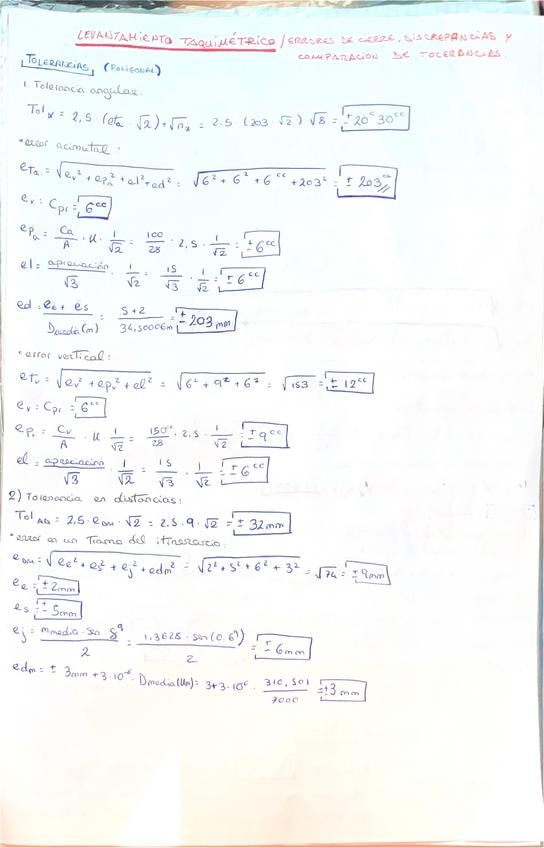 LEVANTAMIENTO TAQUIMÉTRICO / ERRORES DE CIERRE, DISCREPANCIAS Y
COMPARACIÓN DE TOLERANCIAS.
TOLERANCIAS (POLIGONAL)
1. Tolerancia angular:
Tol = 2,5 · (eta · √2) · √n = 2.5 (203 · √2) √8 = ± 20ᶜ 30ᶜᶜ
• error acimutal:
eTa = √(ev² + epa² + el² + ed²) = √(6² + 6² + 6ᶜᶜ + 203²) = ± 203ᶜᶜ
ev = Cpr = 6ᶜᶜ
epa = Ca/A · u · 1/√2 = 100/28 · 2,5 · 1/√2 = ± 6ᶜᶜ
el = apreciación/√3 · 1/√2 = 15/√3 · 1/√2 = ± 6ᶜᶜ
ed = (ee + es)/Dmedia(m) = (5+2)/34,50006m = ± 203 mm
• error vertical:
eTv = √(ev² + epv² + el²) = √(6² + 9² + 6²) = √153 = ± 12ᶜᶜ
ev = Cpr = 6ᶜᶜ
epv = Cv/A · u · 1/√2 = 150ᶜᶜ/28 · 2,5 · 1/√2 = ± 9ᶜᶜ
el = apreciación/√3 · 1/√2 = 15/√3 · 1/√2 = ± 6ᶜᶜ
2) Tolerancia en distancias:
Tol AD = 2,5 · eDM · √2 = 2.5 · 9 · √2 = ± 32mm
• error en un Tramo del itinerario:
eDM = √(ee² + es² + ej² + edm²) = √(2² + 5² + 6² + 3²) = √74 = ± 9mm
ee = ± 2mm
es = ± 5mm
ej = (mmedia · sen δᵍ)/2 = (1,3628 · sen(0.6ᵍ))/2 = ± 6mm
edm = ± 3mm + 3·10⁻⁶ · Dmedia(Km) = 3+3·10⁶ · 310,501/7000 = ±3 mm